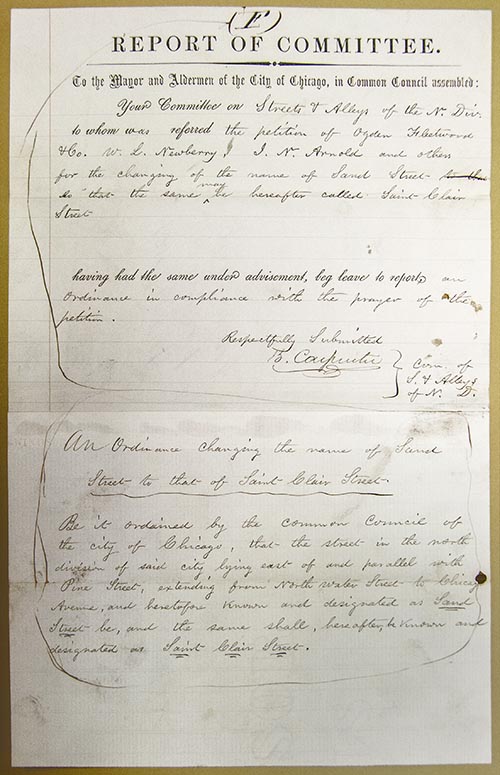 (F)
REPORT OF COMMITTEE.
To the Mayor and Aldermen of the City of Chicago, in Common Council assembled:
Your Committee on Streets & Alleys of the N. Div.
to whom was referred the petition of Ogden Fleetwood
& Co. W. L. Newberry, I. N. Arnold and others
for the changing of the name of Sand Street to that
so that the same may be hereafter called Saint Clair
Street
having had the same under advisement, beg leave to report, an
Ordinance in compliance with the prayer of the
petition.
Respectfully Submitted
B. Carpenter } Com. of
S. & Alleys
of N. D.
An Ordinance changing the name of Sand
Street to that of Saint Clair Street.
Be it ordained by the common Council of
the city of Chicago, that the street in the north
division of said city lying east of and parallel with
Pine Street, extending from North water Street to Chicago
Avenue, and heretofore known and designated as Sand
Street be, and the same shall, hereafter, be known and
designated as Saint Clair Street.